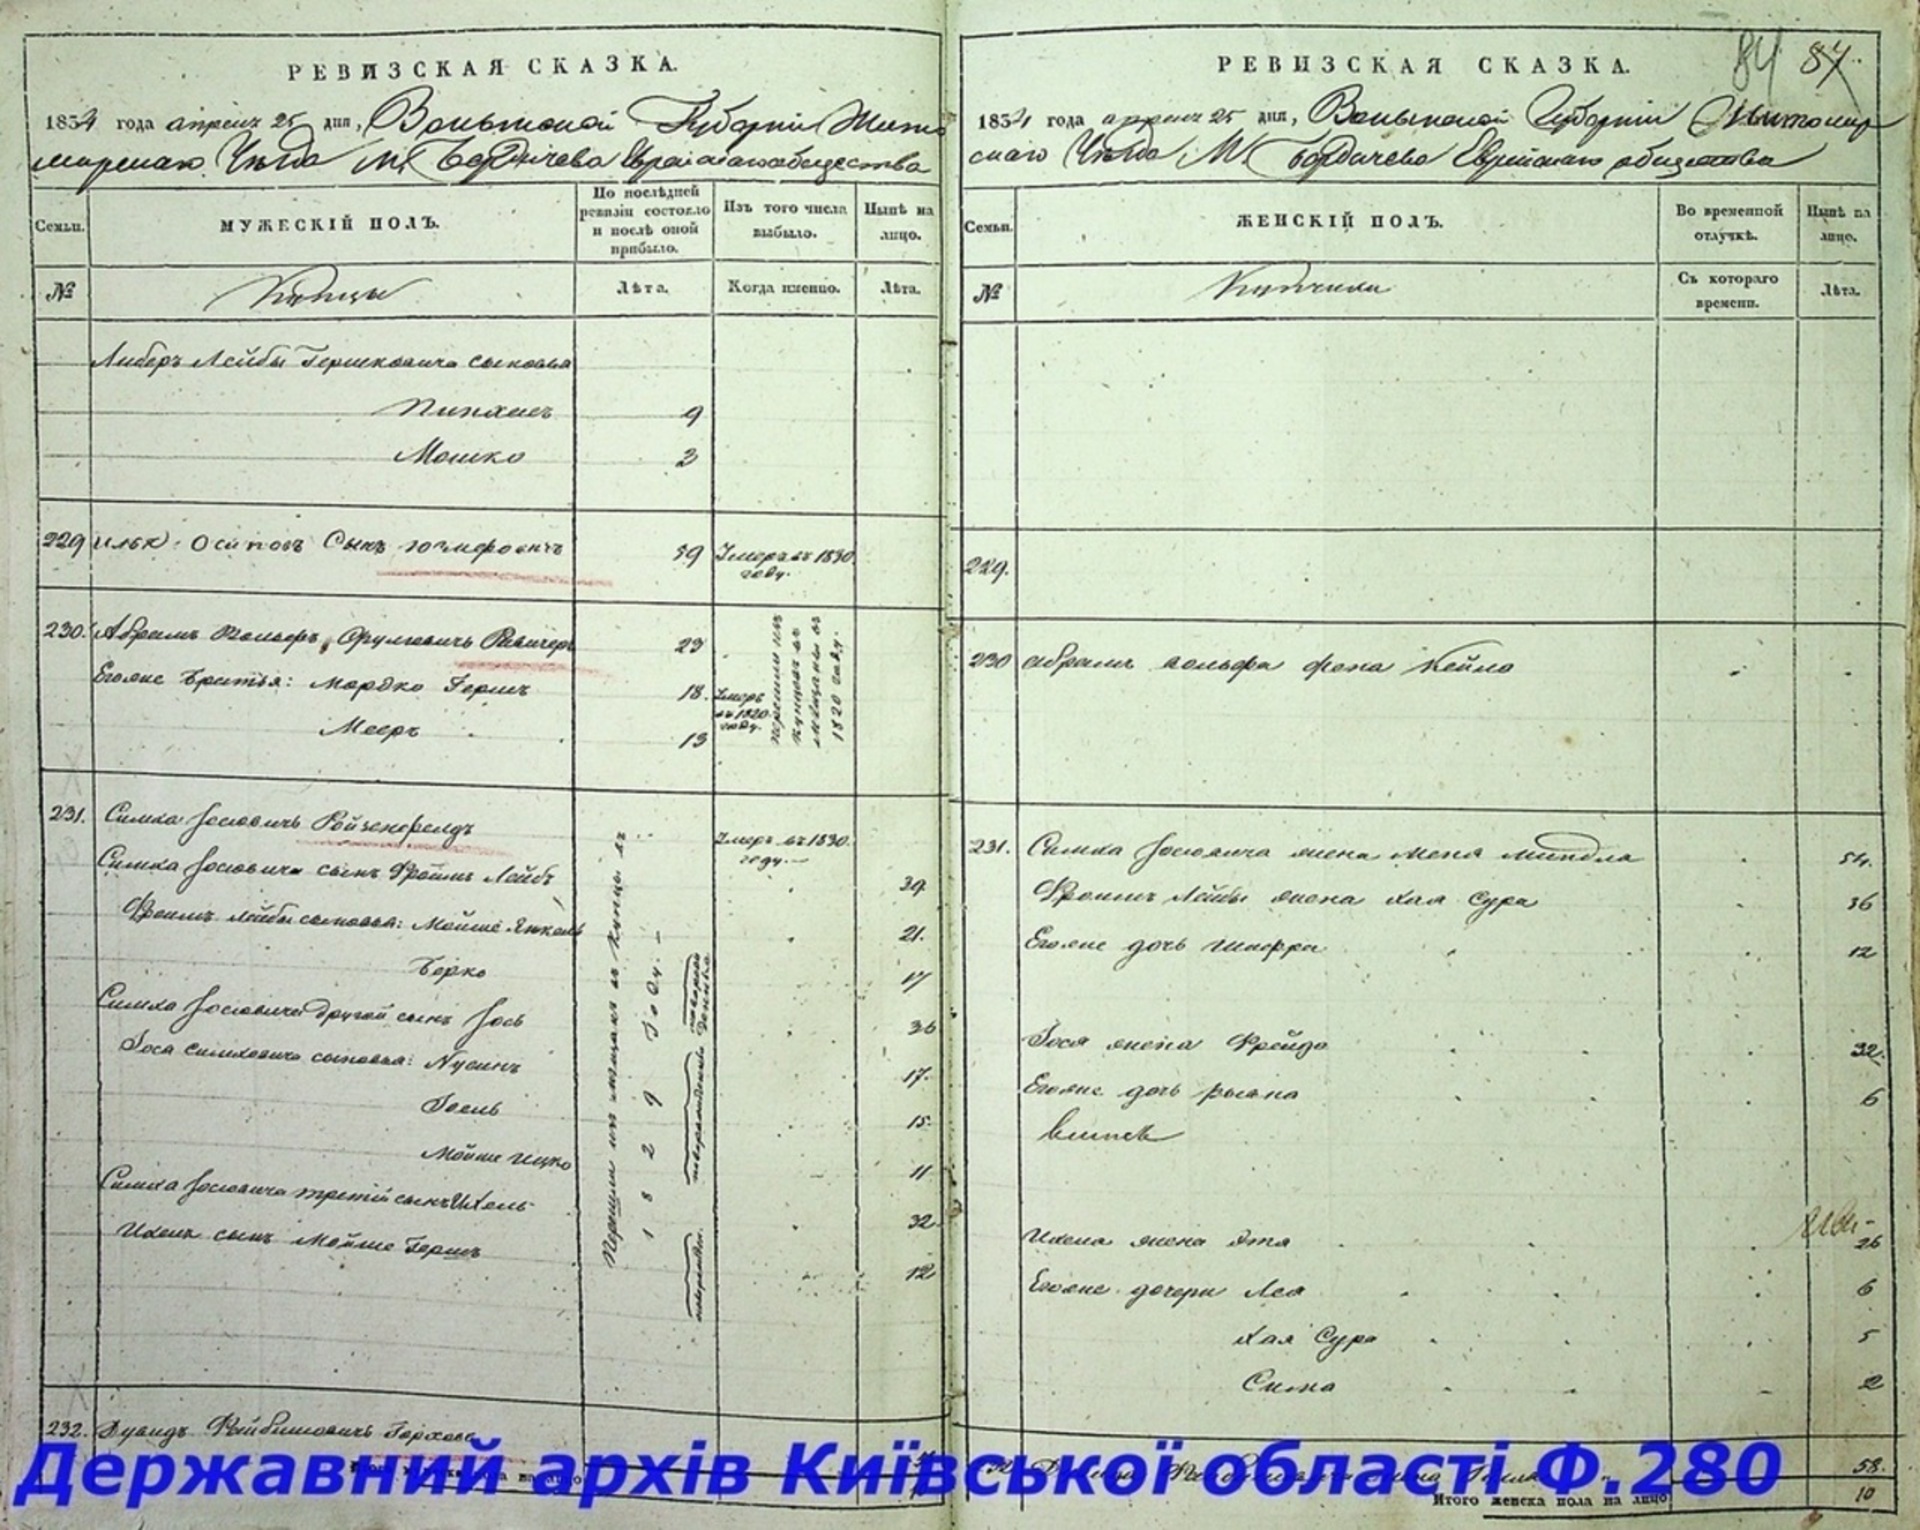 РЕВИЗСКАЯ СКАЗКА.
1834 года апреля 25 дня, Волынской Губернии Жито
мирскаго Уѣзда М. Бердичева Еврейскаго общества
Семьи.
МУЖЕСКІЙ ПОЛЪ.
По послѣдней ревизіи состояло и послѣ оной прибыло.
Изъ того числа выбыло.
Нынѣ на лицо.
№
Купцы
Лѣта.
Когда именно.
Лѣта.
Либеръ Лейбы Гершковича сыновья
Пинхасъ 9
Мошко 2
229 Осиповъ Сынъ 59 Умеръ въ 1830 году.
230. Абрамъ Вольфъ Сруліовичъ 23
Перешли изъ купцовъ въ мѣщаны въ 1820 году.
Егоже братья: Мордко Гершъ 18. Умеръ въ 1820 году.
Мееръ 13
231. Симха Іосіовичъ Ройзенфелдъ Умеръ въ 1830 году.
Перешли изъ мѣщанъ въ купцы въ 1829 году.
Симха Іосіовича сынъ Фроимъ Лейбъ 39
Фроимъ Лейбы сыновья: Мойше Янкель 21.
Берко 17
Симха Іосіовича другой сынъ Іось 36
Іоса Симховича сыновья: Нусинъ 17.
Іоель 15.
Мойше Ицко 11
Симха Іосіовича третій сынъ Ихель 32
Ихель сынъ Мойше Гершъ 12
232. Дувидъ Файбишовичъ
РЕВИЗСКАЯ СКАЗКА.
84 87
1834 года апреля 25 дня, Волынской Губерніи Житомир
скаго Уѣзда М. Бердичева Еврейскаго общества
Семьи.
ЖЕНСКІЙ ПОЛЪ.
Во временной отлучкѣ.
Нынѣ на лицо.
№
Купчихи
Съ котораго времени.
Лѣта.
229.
230 Абрамъ Вольфа жена Кейла
231. Симха Іосіовича жена Меня Миндля 54.
Фроимъ Лейбы жена Хая Сура 36
Егоже дочь Шифра 12
Іося жена Фрейда 32.
Егоже дочь 6
Ихеля женаЭтя 26
Егоже дочери Лея 6
Хая Сура 5
Сима 2
58.
Итого женска пола на лицо 10
Державний архів Київської області Ф.280